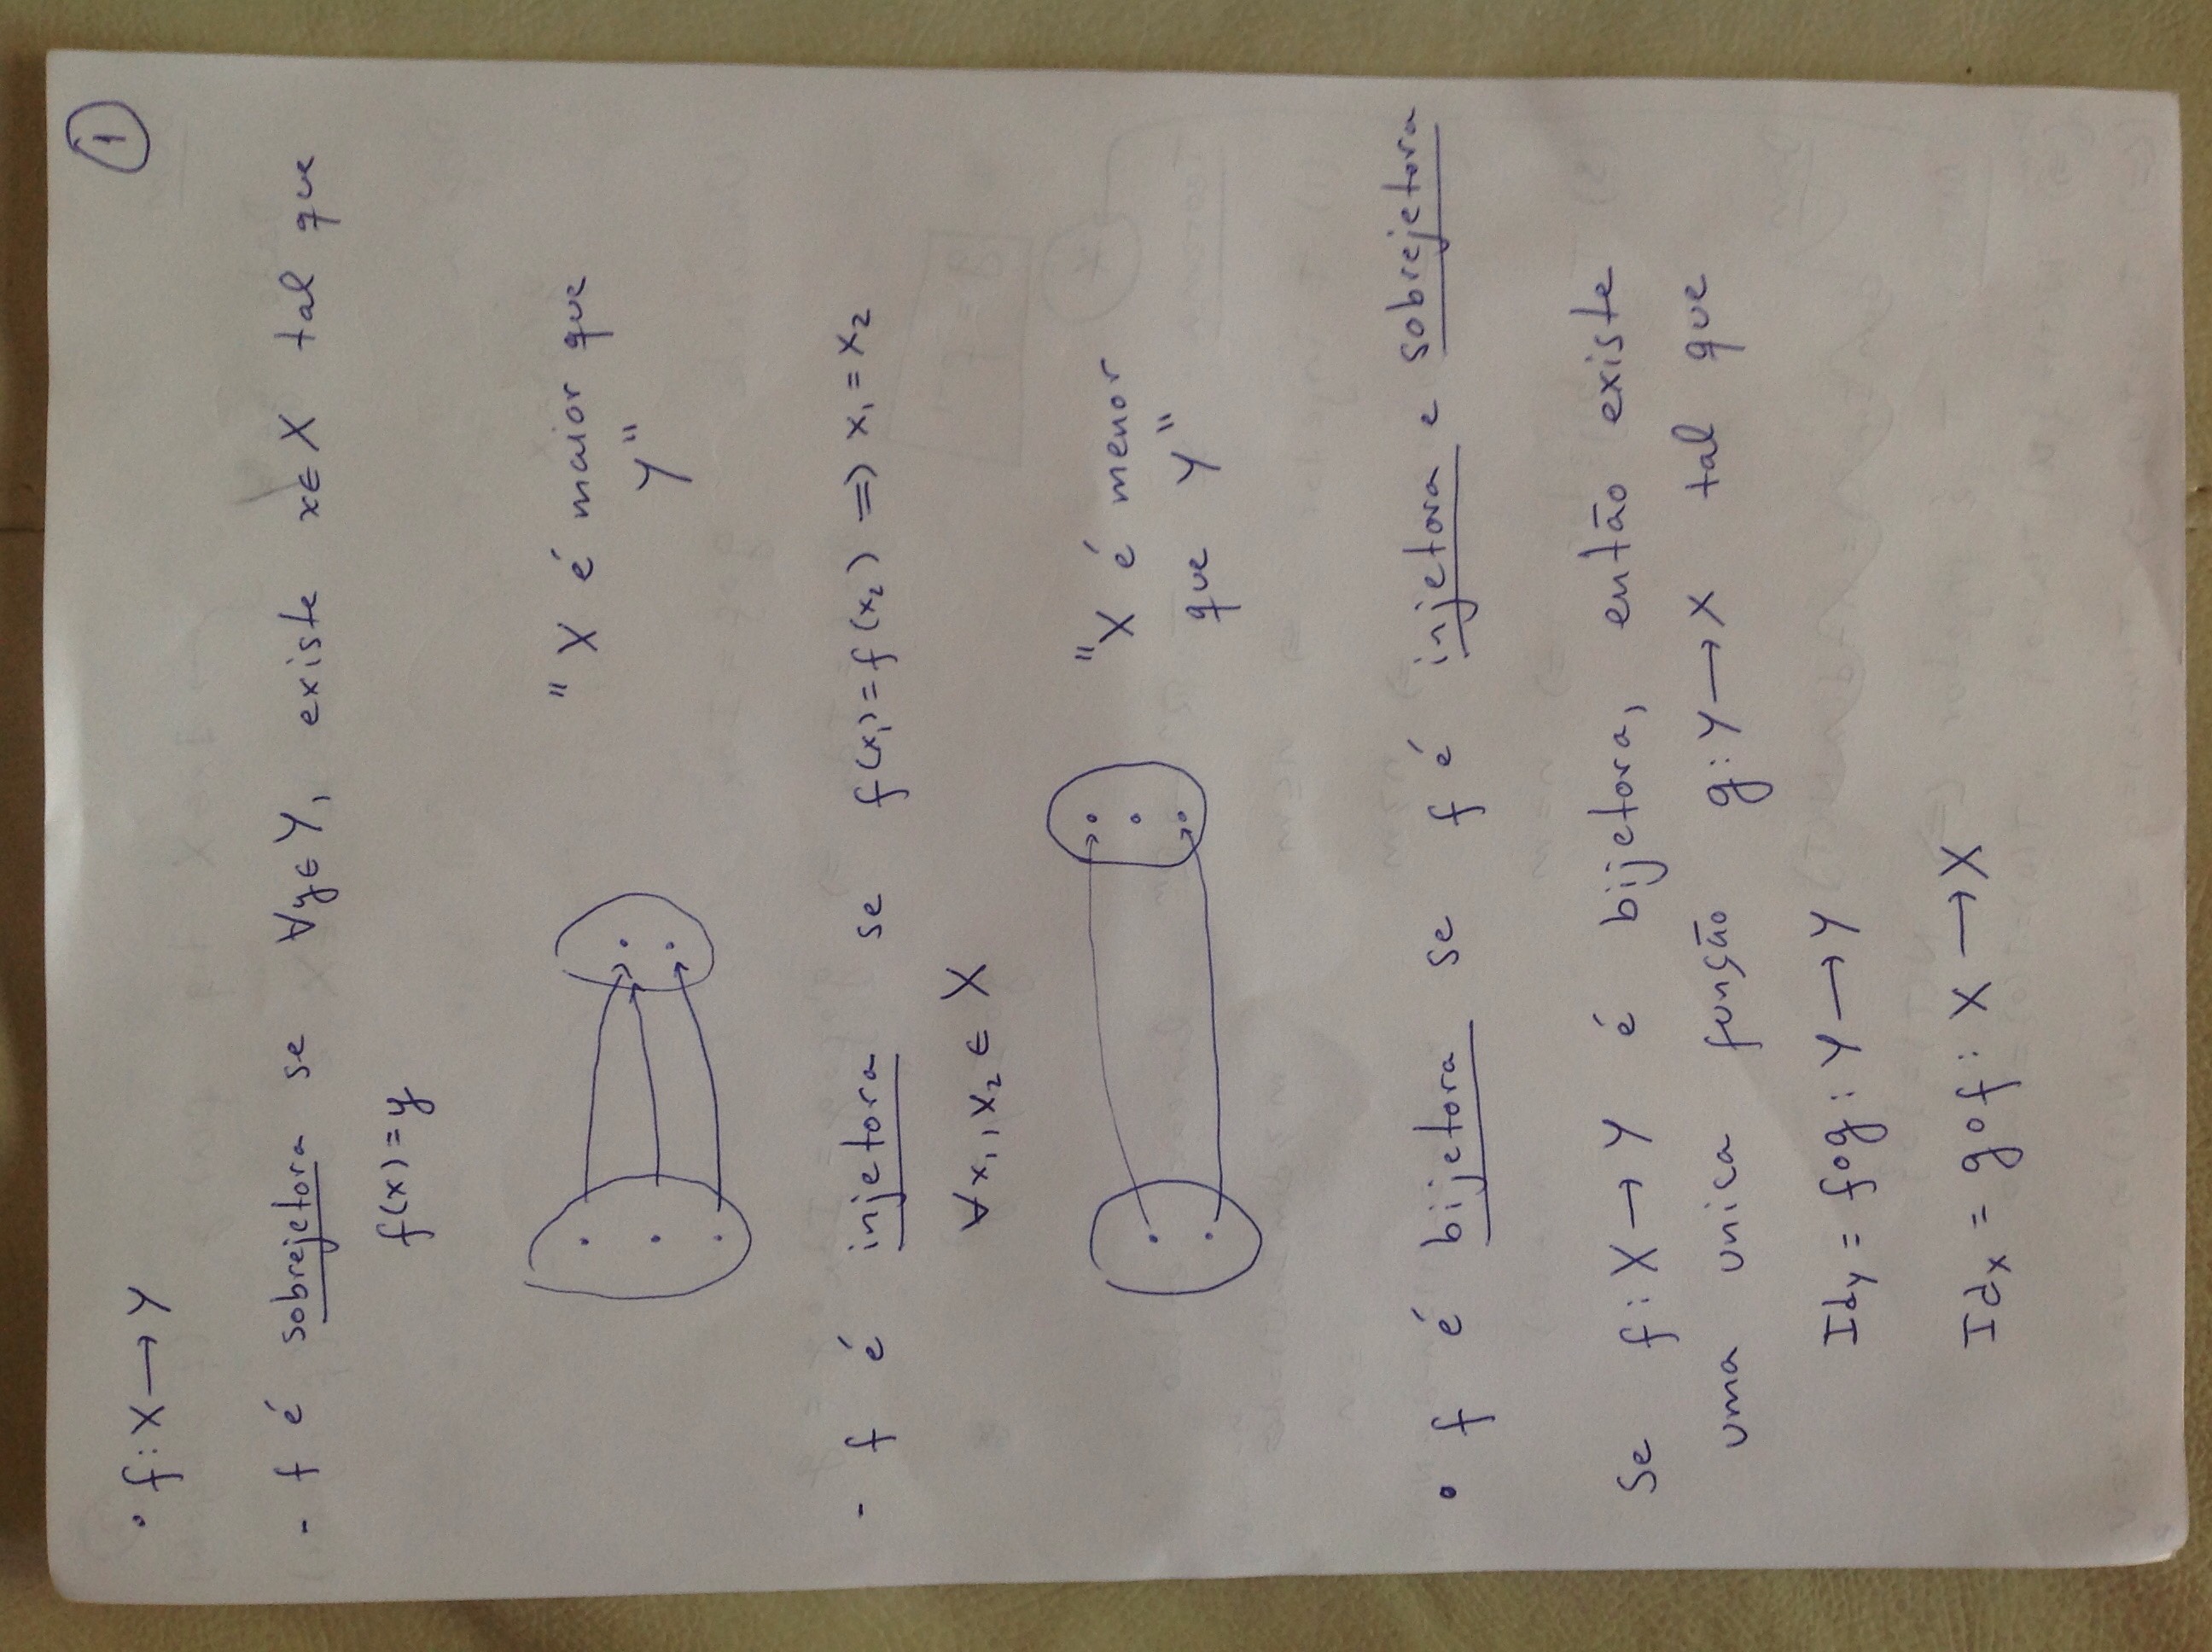 1
• f: X → Y
- f é sobrejetora se ∀y ∈ Y, existe x ∈ X tal que
f(x) = y
" X é maior que
Y "
- f é injetora se f(x₁) = f(x₂) => x₁ = x₂
∀ x₁, x₂ ∈ X
" X é menor
que Y "
• f é bijetora se f é injetora e sobrejetora
Se f: X → Y é bijetora, então existe
uma unica função g: Y → X tal que
Id_Y = f∘g : Y → Y
Id_X = g∘f : X → X